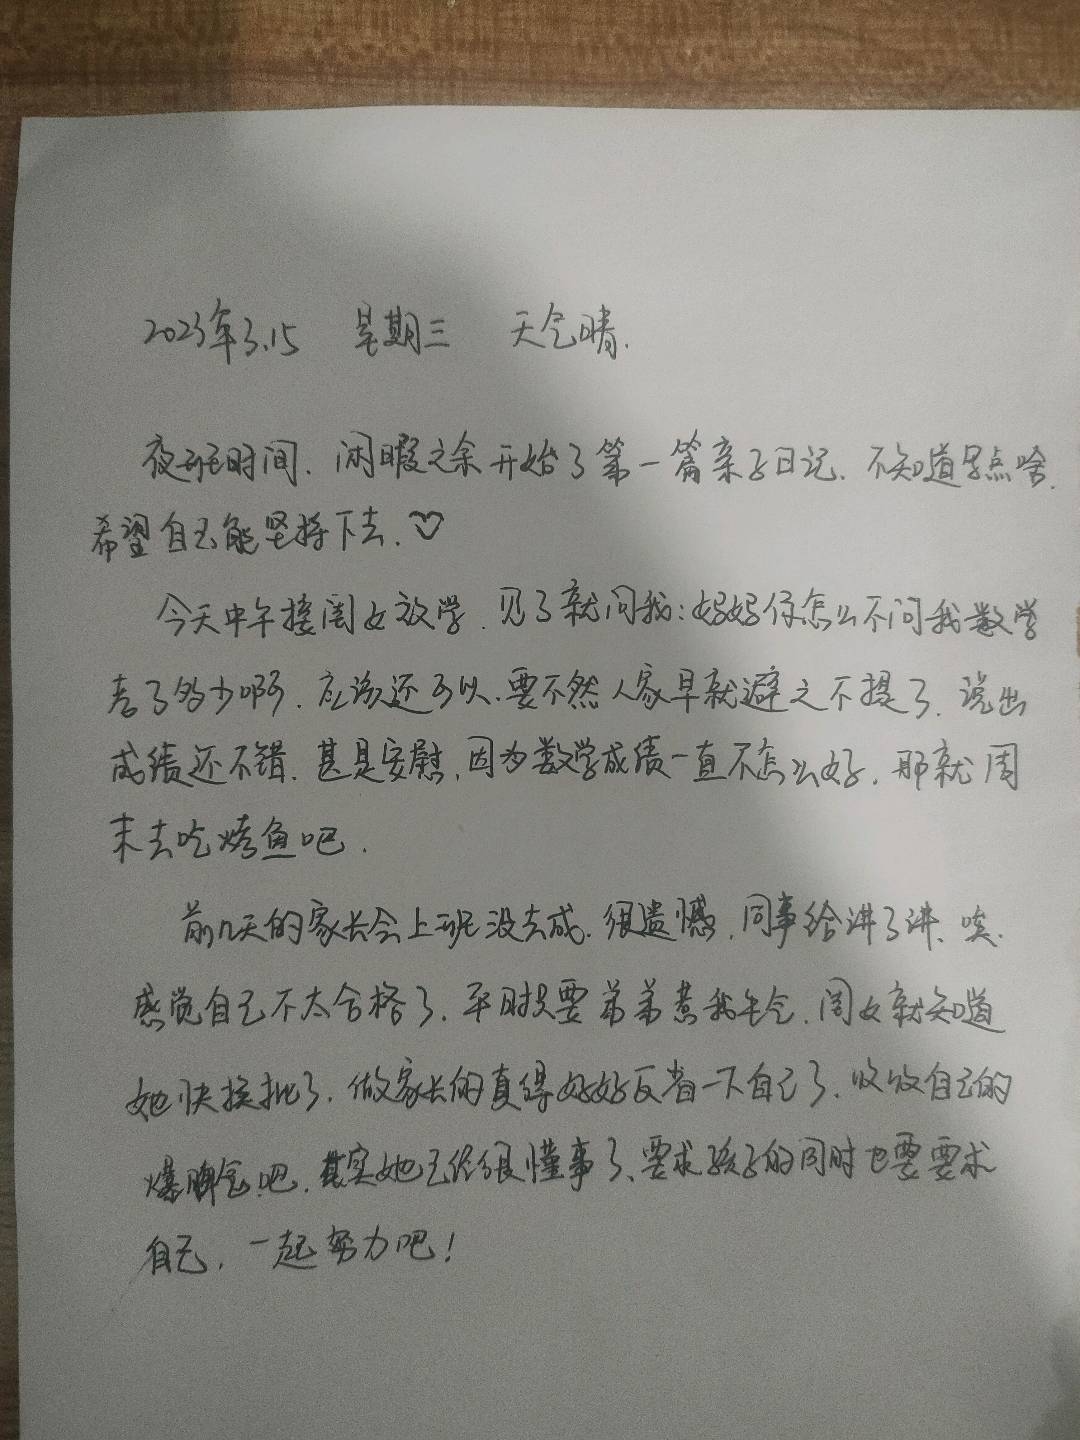 2023年3.15 星期三 天气晴.
夜班时间.闲暇之余开始了第一篇亲子日记.不知道写点啥.
希望自己能坚持下去.♡
今天中午接闺女放学.见了就问我:妈妈你怎么不问我数学
考了多少啊.应该还可以.要不然人家早就避之不提了.说出
成绩还不错.甚是安慰,因为数学成绩一直不怎么好.那就周
末去吃烤鱼吧.
前几天的家长会上班没去成.很遗憾.同事给讲了讲、唉.
感觉自己不太合格了.平时只要弟弟惹我生气.闺女就知道
她快挨批了.做家长的真得好好反省一下自己了.收收自己的
爆脾气吧.其实她已经很懂事了、要求孩子的同时也要要求
自己.一起努力吧!